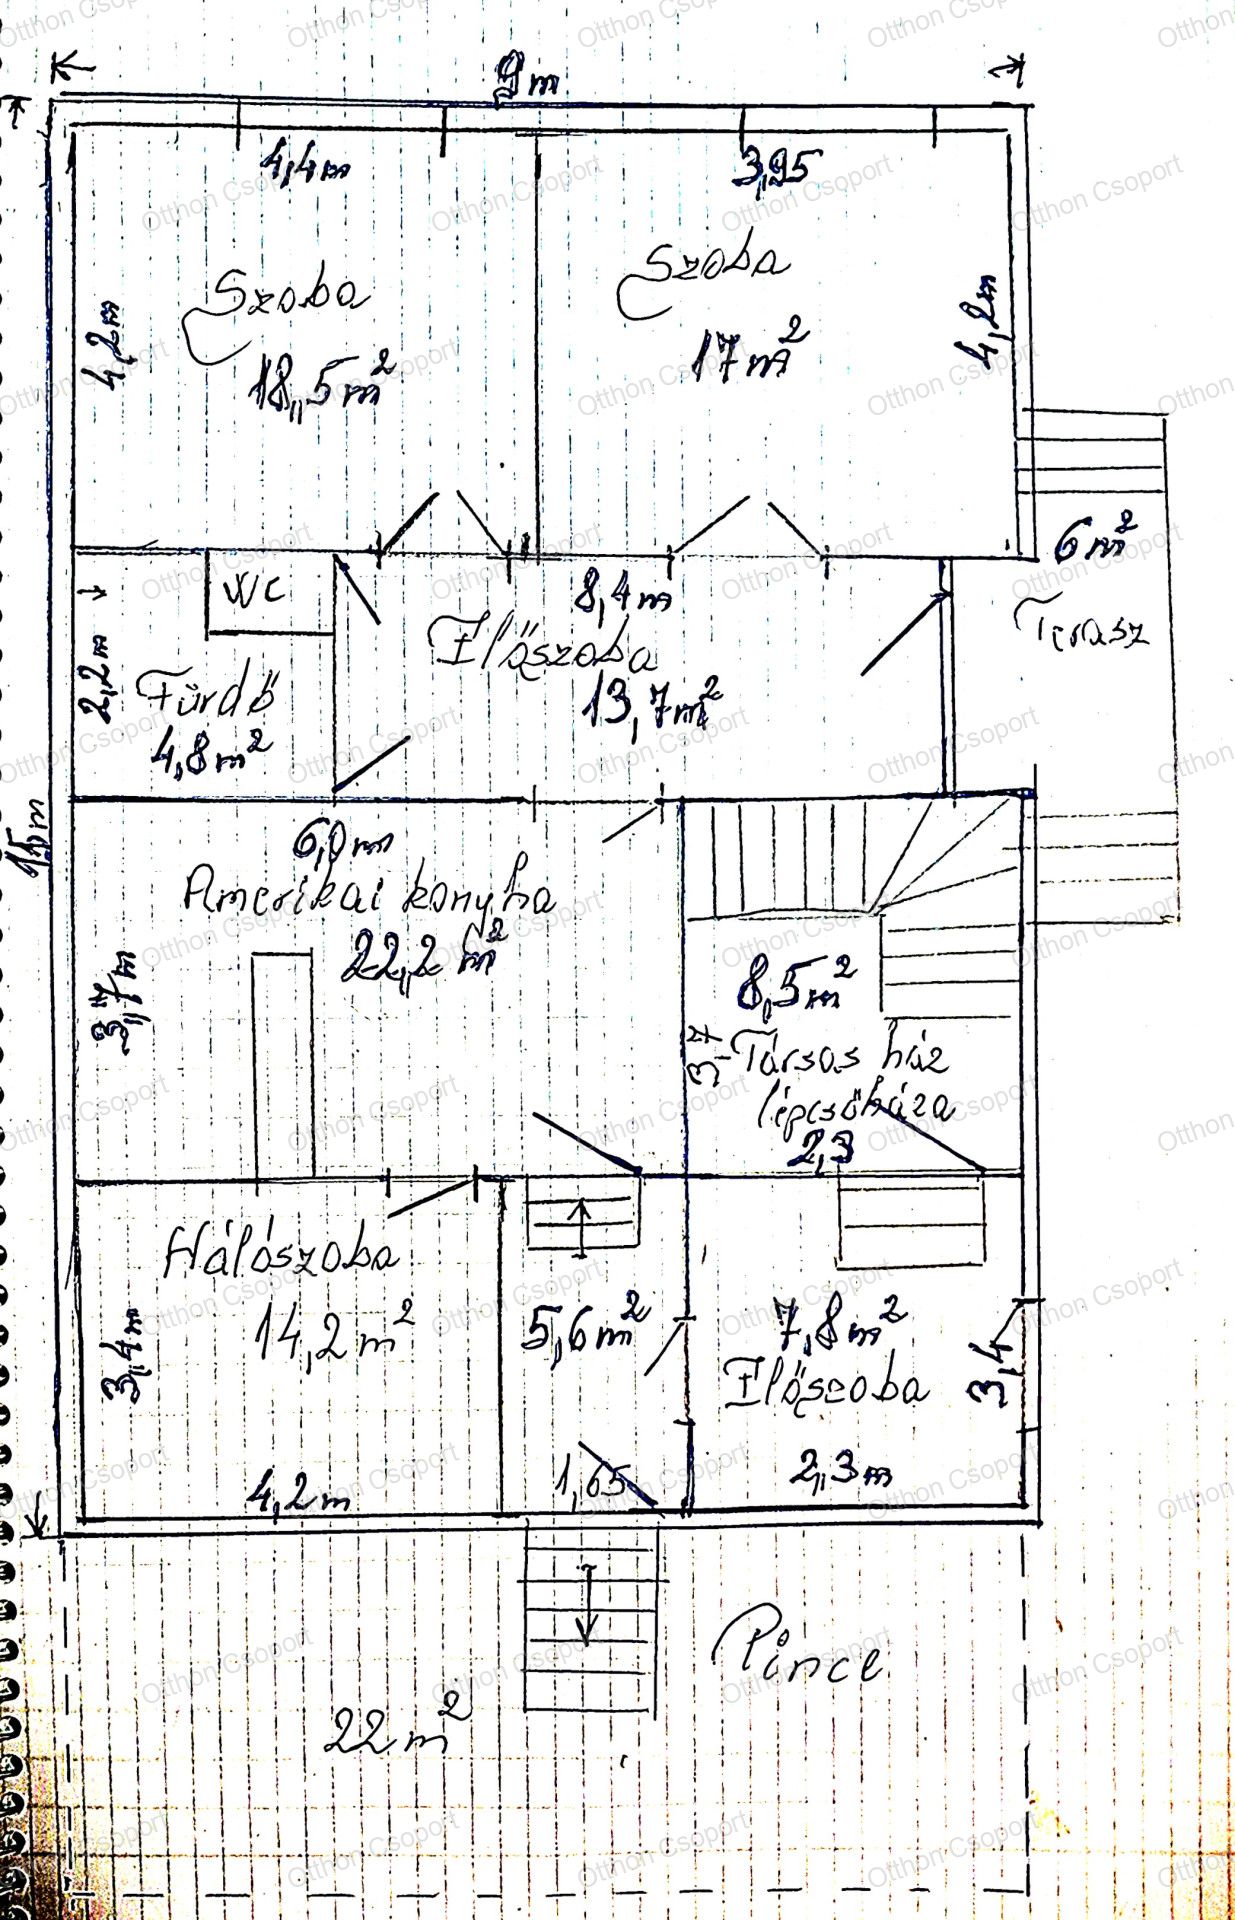 9m
4,4m
3,95
Szoba
18,5m²
4,2m
Szoba
17m²
4,2m
6m²
Terasz
WC
8,4m
Előszoba
13,7m²
2,2m
Fürdő
4,8m²
15m
6,0m
Amerikai konyha
22,2m²
3,7m
8,5m²
3,7
Társas ház
lépcsőháza
2,3
Hálószoba
14,2m²
3,4m
4,2m
5,6m²
1,65
7,8m²
Előszoba
3,4
2,3m
Pince
22m²
Otthon Csoport